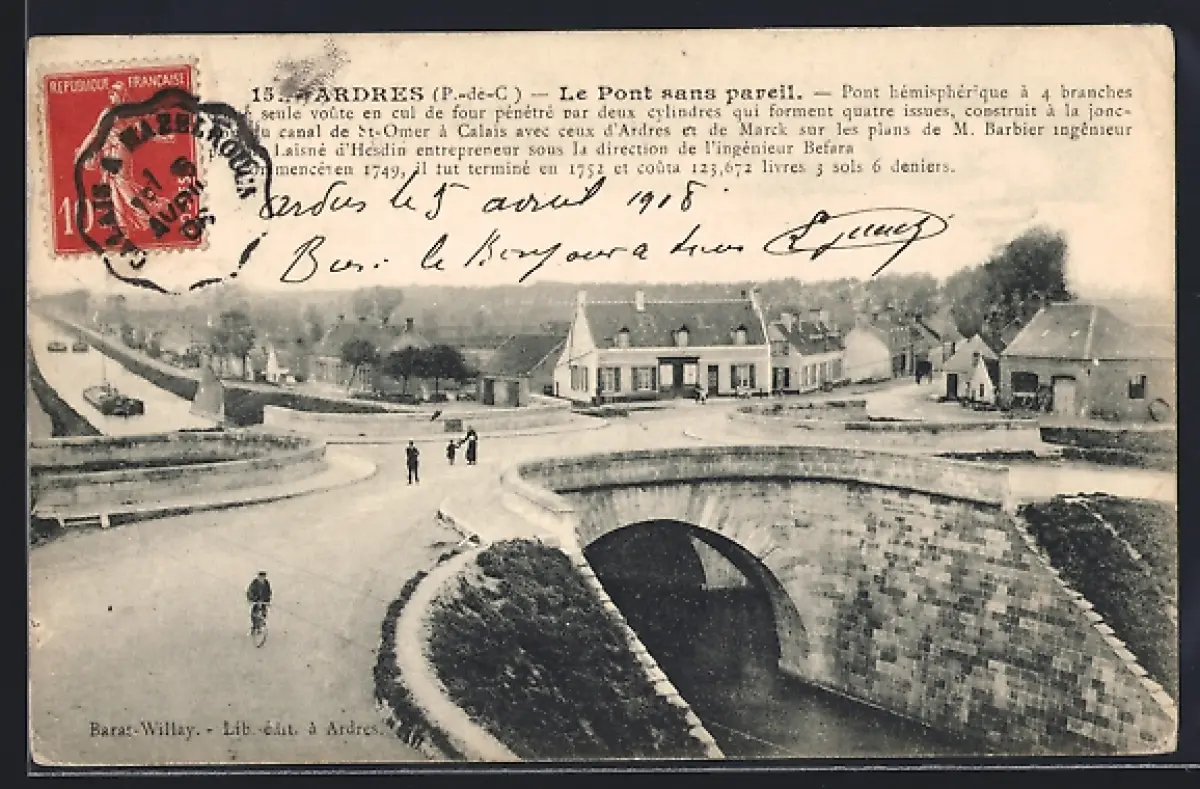 REPUBLIQUE FRANÇAISE
10
CALAIS A HAZEBROUCK
AVRIL
15. ARDRES (P.-de-C) — Le Pont sans pareil. — Pont hémisphérique à 4 branches
seule voûte en cul de four pénétré par deux cylindres qui forment quatre issues, construit à la jonc-
du canal de St-Omer à Calais avec ceux d'Ardres et de Marck sur les plans de M. Barbier ingénieur
Laisné d'Hesdin entrepreneur sous la direction de l'ingénieur Befara
mencé en 1749, il fut terminé en 1752 et coûta 123,672 livres 3 sols 6 deniers.
ardres le 5 avril 1908
le Bonjour a tous
Barat-Willay. - Lib.-édit. à Ardres.